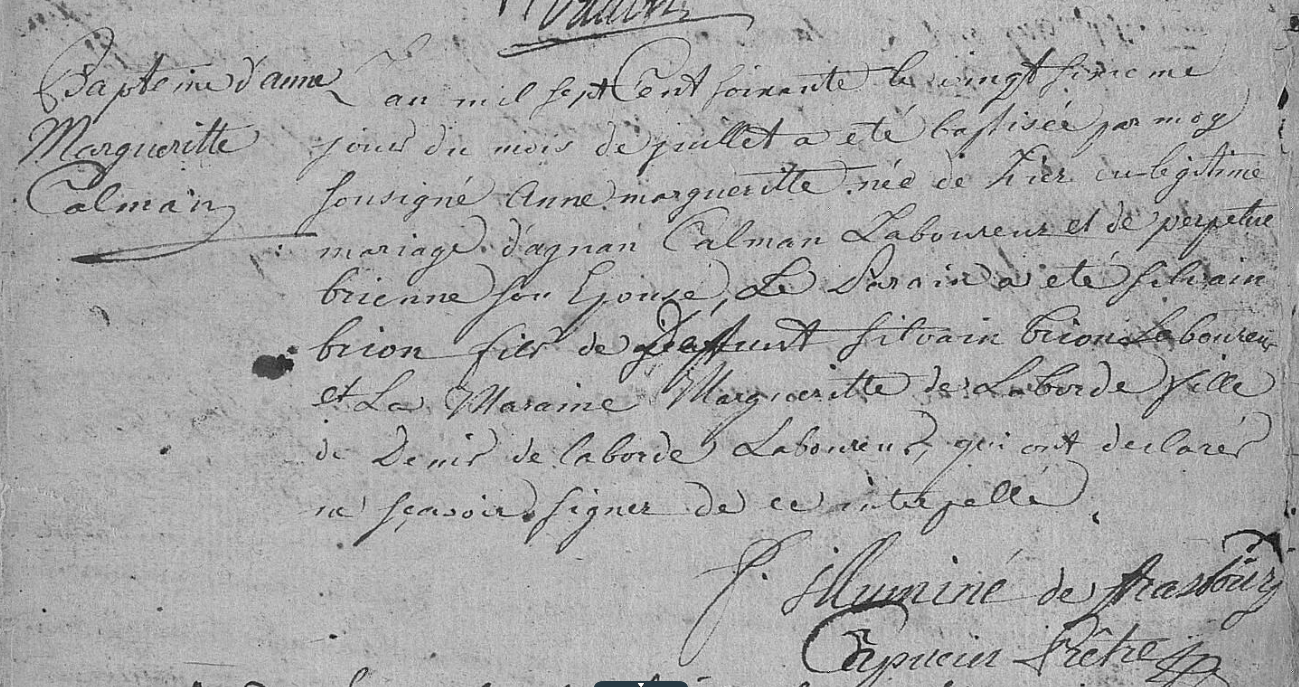 Bapteme d'anne
Margueritte
Calman
L'an mil sept Cent soixante le vingt sixieme
jour du mois de juillet a eté baptisée par moy
sousigné Anne margueritte née de hier en legitime
mariage d'agnan Calman Laboureur et de perpetue
brienne son Epouse, Le Parain a eté silvain
brion fils de deffunt silvain brion Laboureur
et La Maraine Margueritte de Laborde fille
de Denis de laborde Laboureur, qui ont declarés
ne sçavoir signer de ce interpellé
f. illuminé de strasbourg
Capucin Prêtre